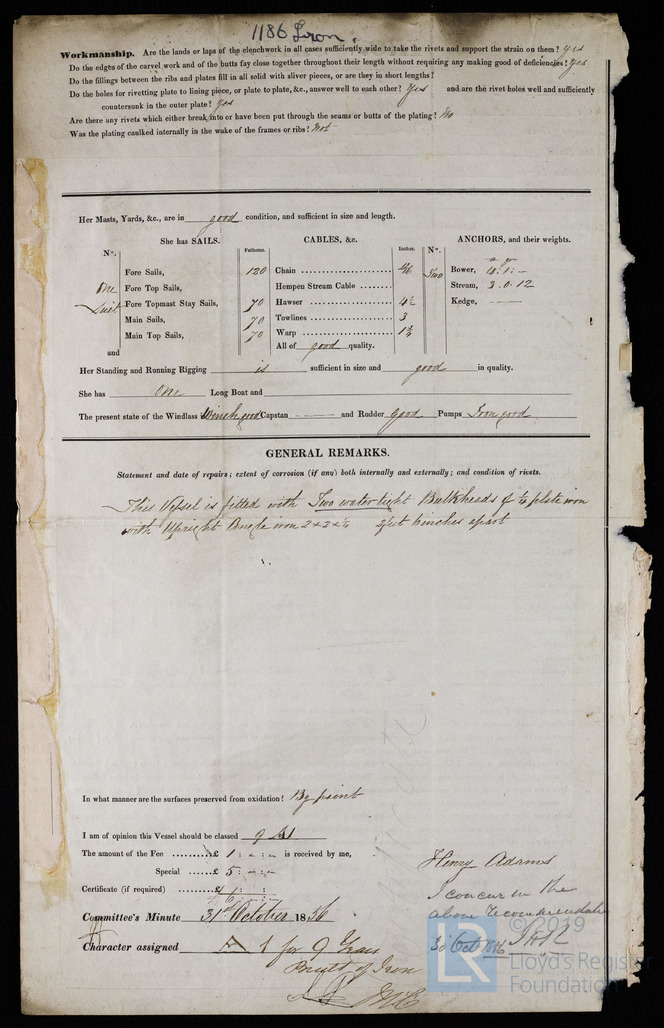 1186 Iron.
Workmanship. Are the lands or laps of the clenchwork in all cases sufficiently wide to take the rivets and support the strain on them? Yes
Do the edges of the carvel work and of the butts fay close together throughout their length without requiring any making good of deficiencies? Yes
Do the fillings between the ribs and plates fill in all solid with sliver pieces, or are they in short lengths?
Do the holes for rivetting plate to lining piece, or plate to plate, &c., answer well to each other? Yes and are the rivet holes well and sufficiently
countersunk in the outer plate? Yes
Are there any rivets which either break into or have been put through the seams or butts of the plating? No
Was the plating caulked internally in the wake of the frames or ribs? Not
Her Masts, Yards, &c., are in good condition, and sufficient in size and length.
She has SAILS. CABLES, &c. ANCHORS, and their weights.
N°. Fathoms. Inches. N°.
Fore Sails, 120 Chain Two Bower,
One Fore Top Sails, Hempen Stream Cable Stream, 3.0.12
Suit Fore Topmast Stay Sails, 70 Hawser 4½ Kedge,
Main Sails, 70 Towlines 3
Main Top Sails, 70 Warp
and All of good quality.
Her Standing and Running Rigging is sufficient in size and good in quality.
She has One Long Boat and
The present state of the Windlass is Winch good Capstan and Rudder Good Pumps Iron good
GENERAL REMARKS.
Statement and date of repairs; extent of corrosion (if any) both internally and externally; and condition of rivets.
This Vessel is fitted with Two water tight Bulkheads of ¼ plate iron
with Upright Angle iron 2 x 2 x ¼ 2 feet 6 inches apart
In what manner are the surfaces preserved from oxidation? By paint
I am of opinion this Vessel should be classed 9 A1
The amount of the Fee £ 1 : - : - is received by me,
Special £ 5 : - : -
Certificate (if required) £ 1 : :
Henry Adams
I concur in the
above recommendation
30 Oct 1856
Committee's Minute 31st October 1856
Character assigned A 1 for 9 Years
Built of Iron
©2019
LR Lloyd's Register
Foundation